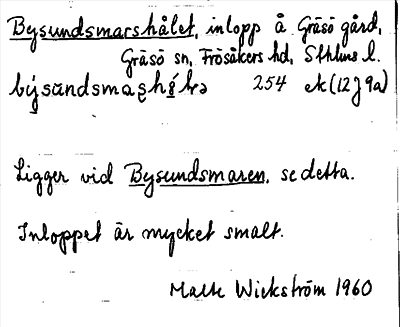 Bysundsmarshålet, inlopp å Gräsö gård,
Gräsö sn, Frösåkers hd, Sthlms l.
254 ek (12J9a)
Ligger vid Bysundsmaren, se detta.
Inloppet är mycket smalt.
Malte Wickström 1960